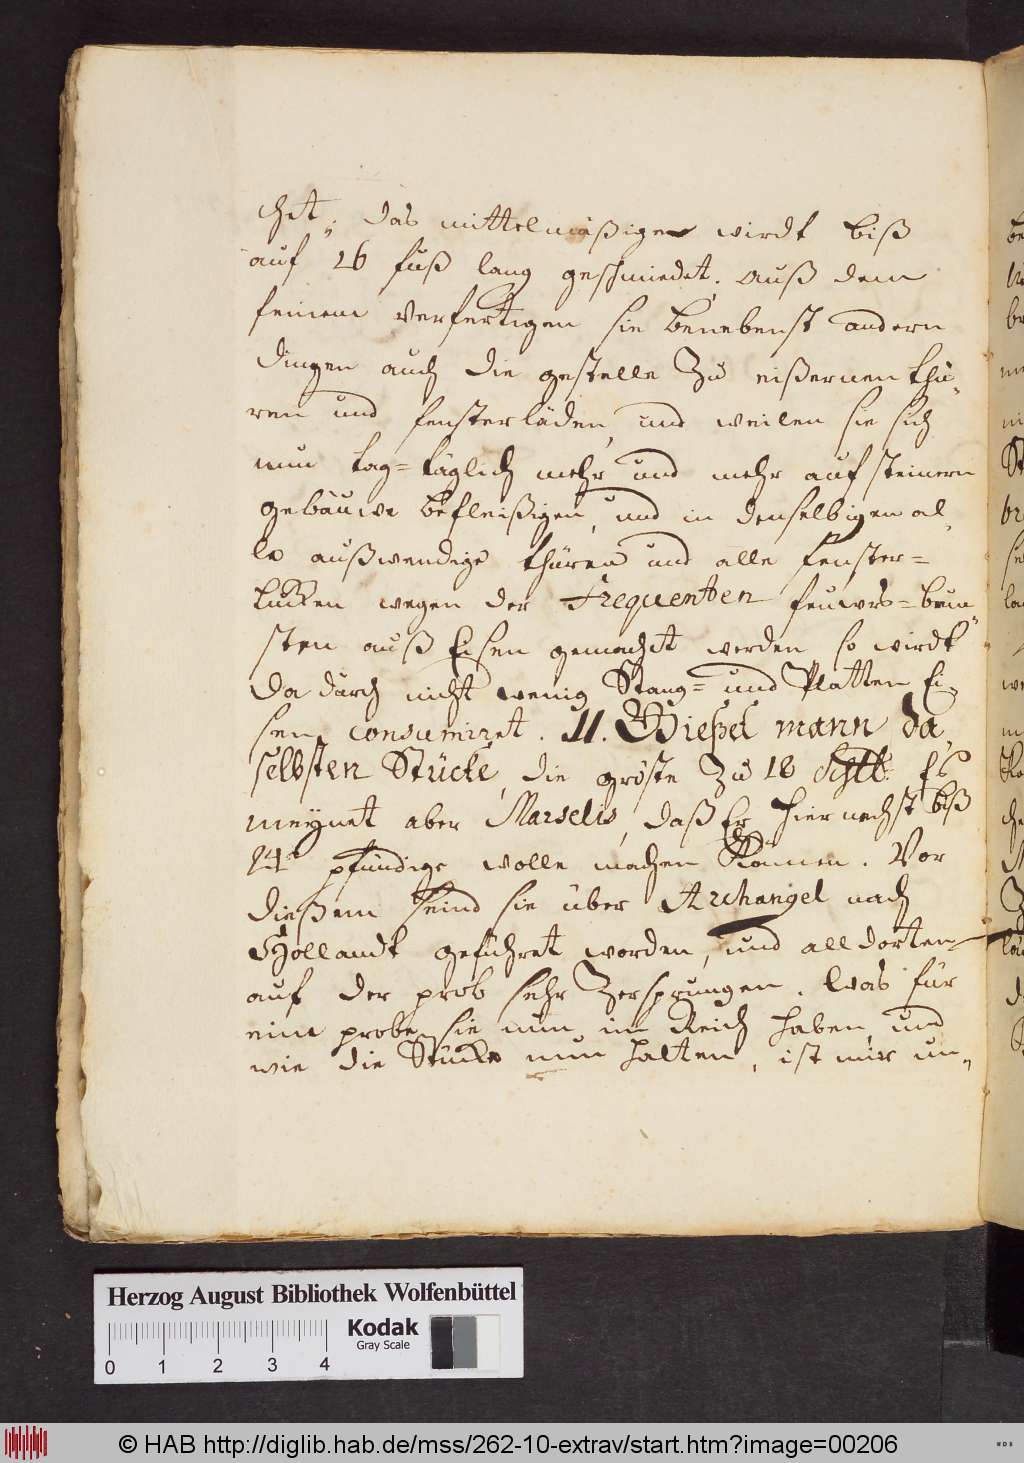 chet, das mittelmäßige wirdt biß
auf 26 fuß lang geschmiedet. Auß dem
feinem verfertigen sie benebenst andern
dingen auch die gestelle Zu eißernen thü-
ren und fensterläden, und weilen sie sich
nun tag=täglich mehr und mehr auf steinern
gebäuwe befleißigen, und in denselbigen al-
le außwendige thüren und alle Fenster=
lucken wegen der Frequenten feuwrs=brun-
sten auß Eisen gemachet werden so wirdt
dadurch nicht wenig Stang= und Platten Ei-
sen consumiret. 11. Gießet mann da-
selbsten Stücke, die gröste Zu 18 Es
meynet aber Marselis, daß Er hiernechst biß
24 pfündige wolle machen Können. Vor
dießem seind sie über Archangel nach
Hollandt geführet worden, und alldorten
auf der prob sehr Zersprungen. Was für
eine probe sie nun im Reich haben, und
wie die Stücke nun halten, ist mir un-
Herzog August Bibliothek Wolfenbüttel
Kodak
Gray Scale
0 1 2 3 4
© HAB http://diglib.hab.de/mss/262-10-extrav/start.htm?image=00206